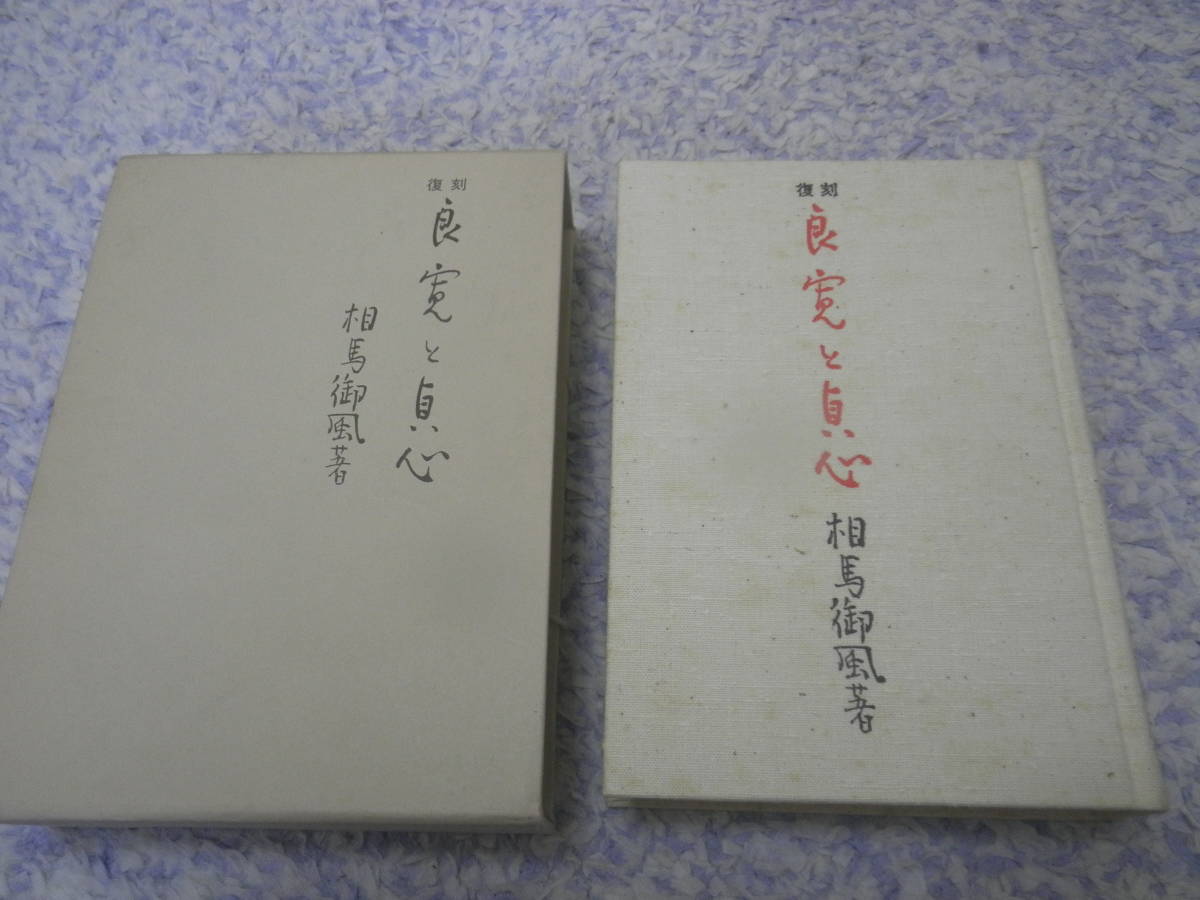 復刻
良寛と貞心
相馬御風著
復刻
良寛と貞心
相馬御風著